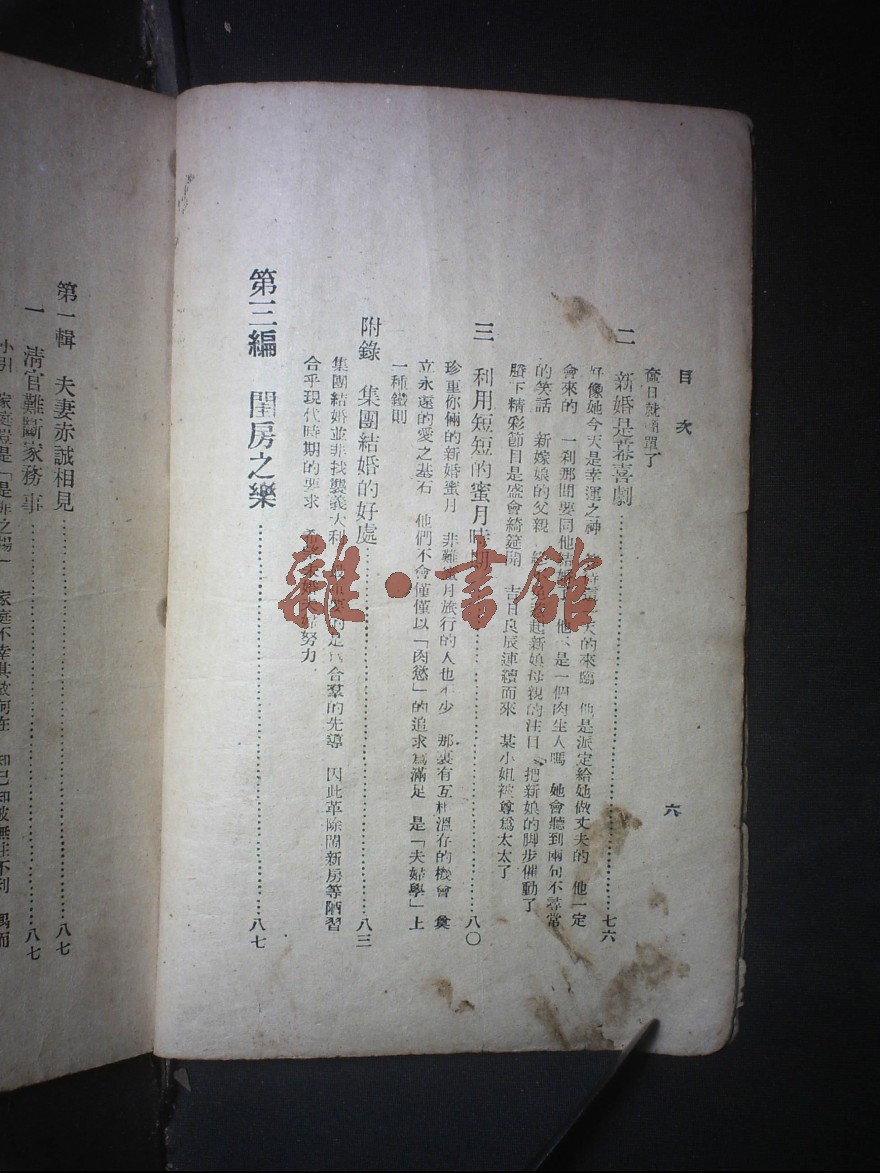 目次
六
奮日就簡單了
二 新婚是幕喜劇……七六
好像她今天是幸運之神 夫的來臨 他是派定給她做丈夫的 他一定
會來的 一刹那間要同他結婚了 他 是一個肉生人嗎 她會聽到兩句不尋常
的笑話 新嫁娘的父親 起新娘母親的注目 把新娘的脚步催動了
賸下精彩節目是盛會綺筵開 吉日良辰連續而來 某小姐被尊爲太太了
三 利用短短的蜜月時期……八〇
珍重你倆的新婚蜜月 非難蜜月旅行的人也不少 那裏有互相溫存的機會 奠
立永遠的愛之基石 他們不會僅僅以「肉慾」的追求爲滿足 是「夫婦學」上
一種鐵則
附錄 集團結婚的好處……八三
集團結婚並非抄襲義大利 最重要的是 合羣的先導 因此革除鬧新房等陋習
合乎現代時期的要求 努力
第三編 閨房之樂……八七
雜·書館
第一輯 夫妻赤誠相見……八七
一 淸官難斷家務事……八七
小引 家庭豈是「是非之場」 家庭不幸其故何在 知己知彼無往不利 偶而